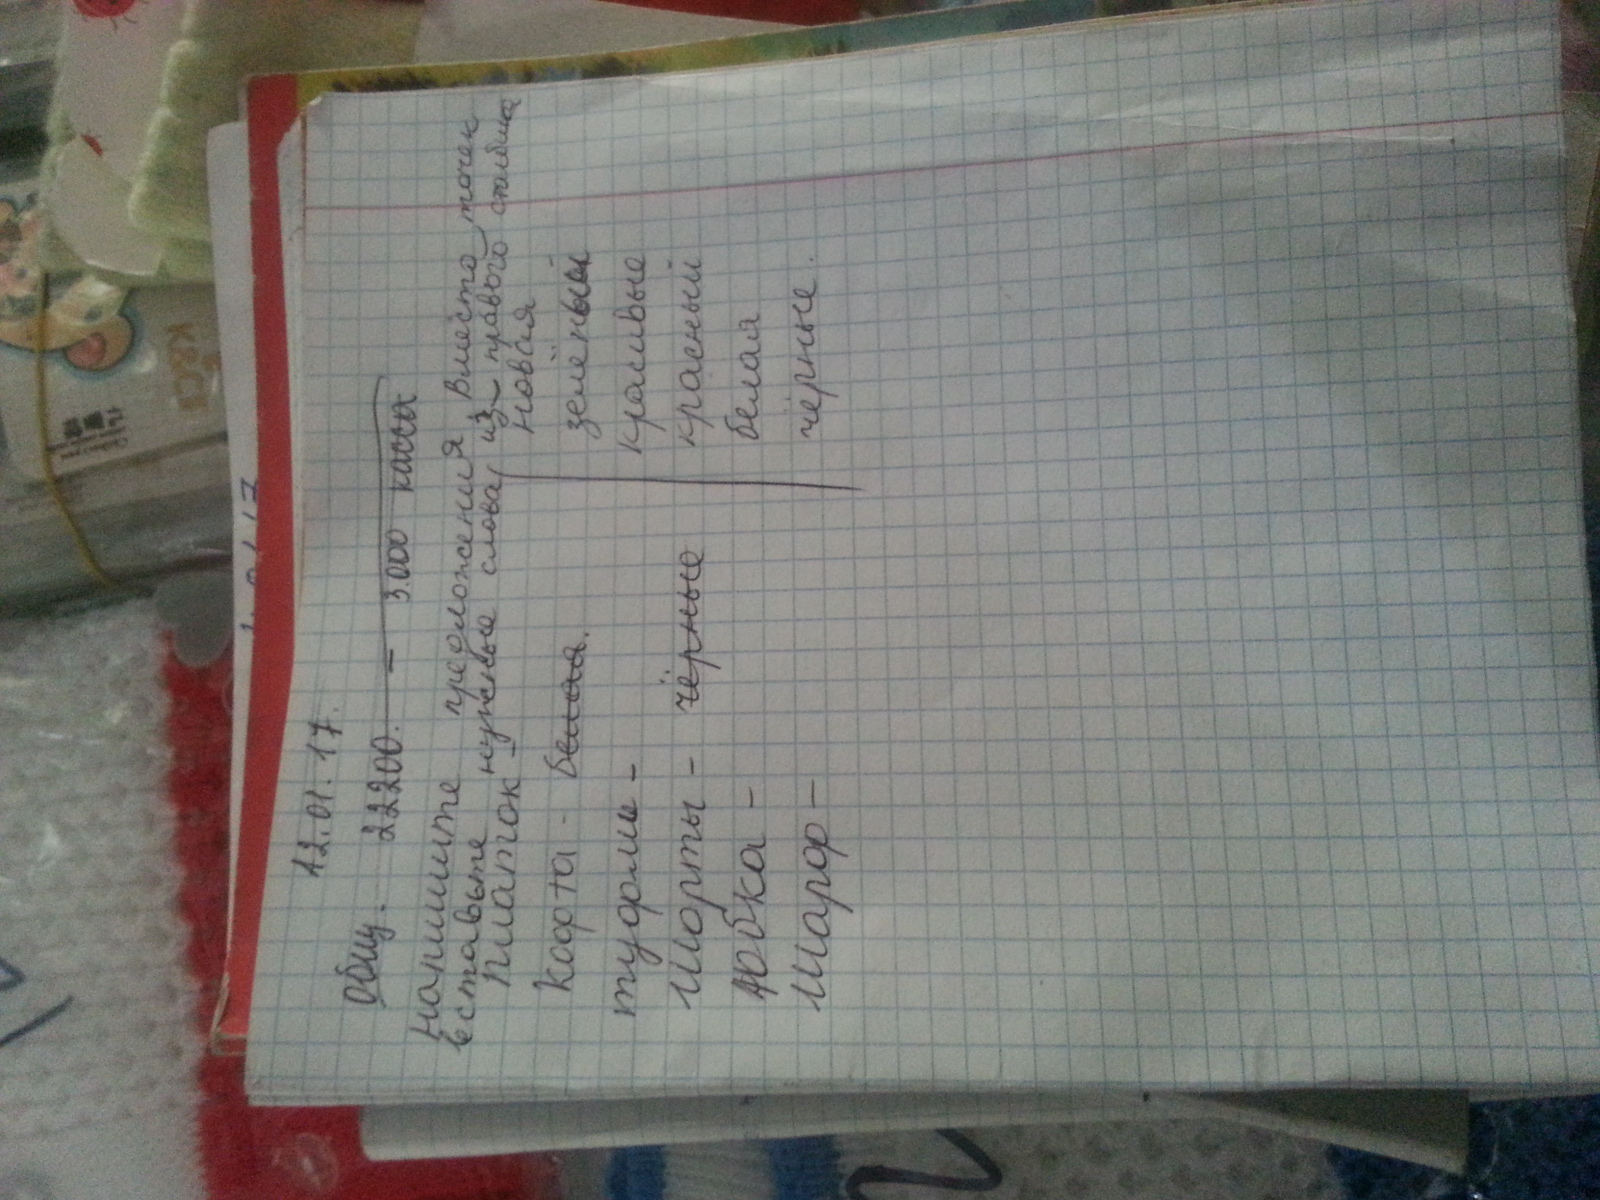 12.01.17.
Общ. 22200. — 3.000 касса
Напишите предложения, вместо точек
вставьте нужные слова из правого столбика
Платок - новая
Кофта - белая. зелёный
туфли - красивые
Шорты - чёрные красный
Юбка - белая
Шарф - чёрные.
K&C